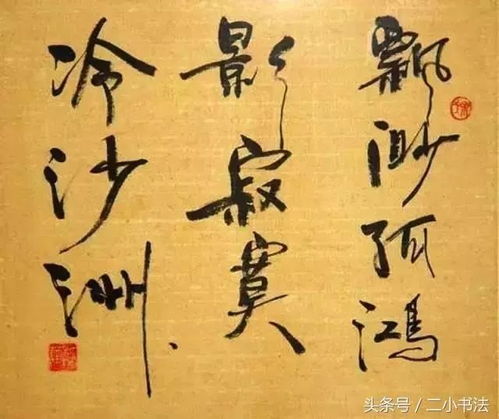 飘渺孤鸿
影寂寞
冷沙洲
头条号／二小书法